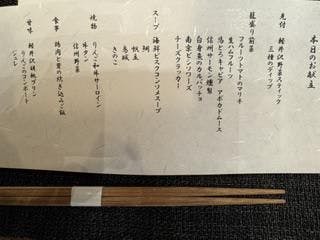 本日のお献立
先付 軽井沢野菜スティック
三種のディップ
籠盛り前菜
フルーツトマトのマリネ
生ハムフルーツ
鴨とろキャビア アボカドムース
信州サーモン燻製
白身魚のカルパッチョ
南京ビシソワーズ
チーズクラッカー
スープ 海鮮ビスクコンソメスープ
鯛
帆立
きのこ
焼物
りんご和牛サーロイン
牛タン
信州野菜
食事 鶏肉と蕈の炊き込みご飯
甘味 軽井沢胡桃プリン
りんごのコンポート
ジュレ